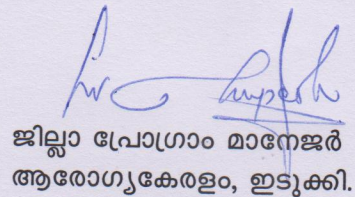 ജില്ലാ പ്രോഗ്രാം മാനേജർ
ആരോഗ്യകേരളം, ഇടുക്കി.